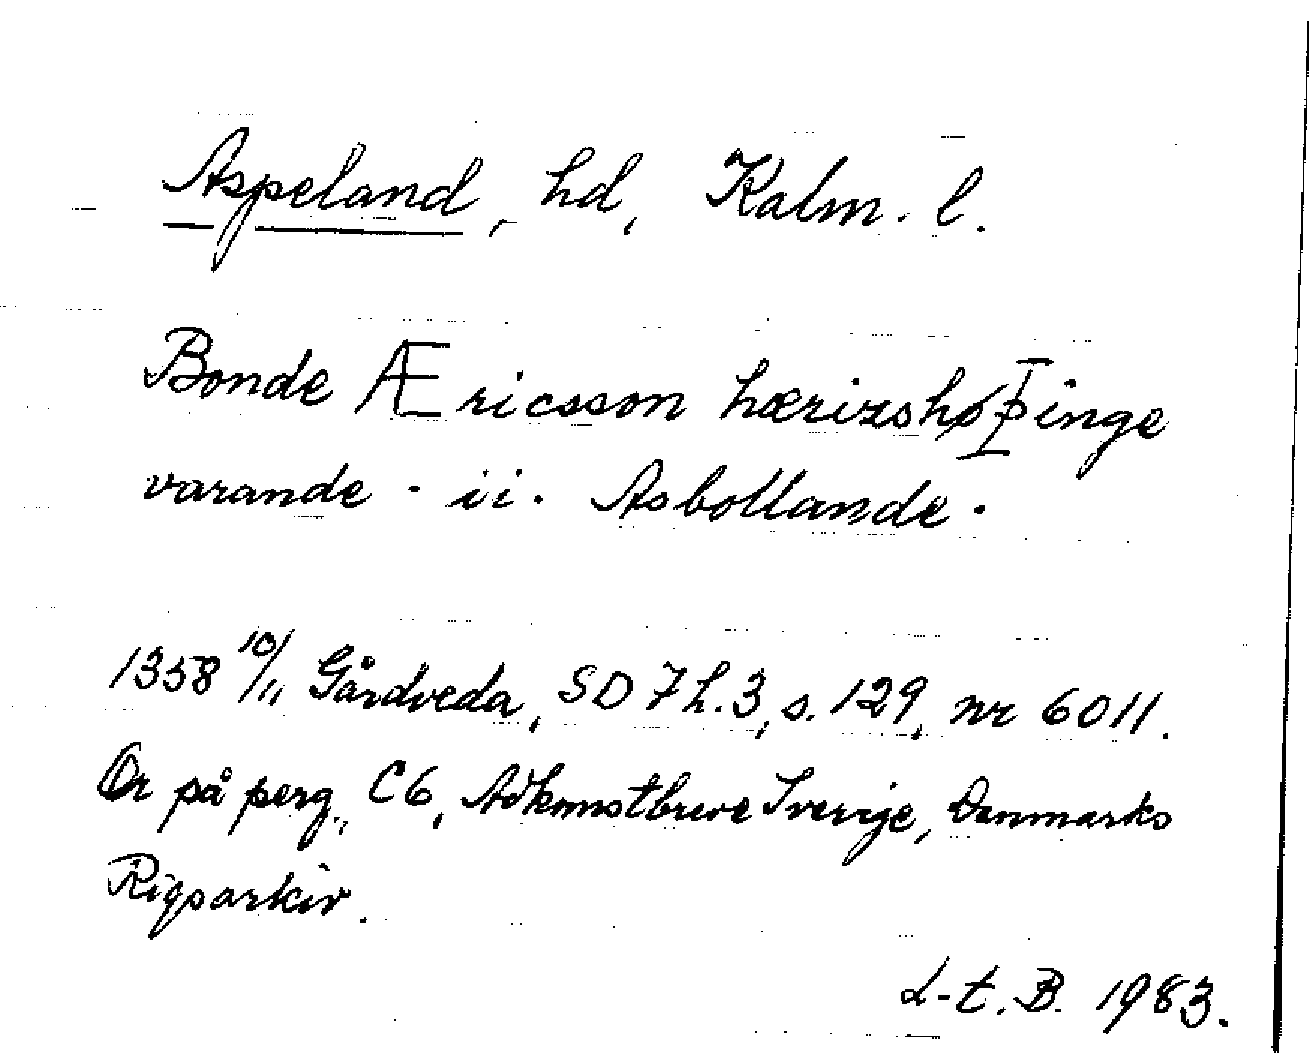 Aspeland, hd, Kalm. l.
Bonde Æricsson hærizshøþinge
varande · ii · Asbollande ·
1358 10/11 Gårdveda, SD 7 h. 3, s. 129, nr 6011.
Or på perg., C6, Adkomstbreve Sverige, Danmarks
Rigsarkiv.
L-t. B. 1983.